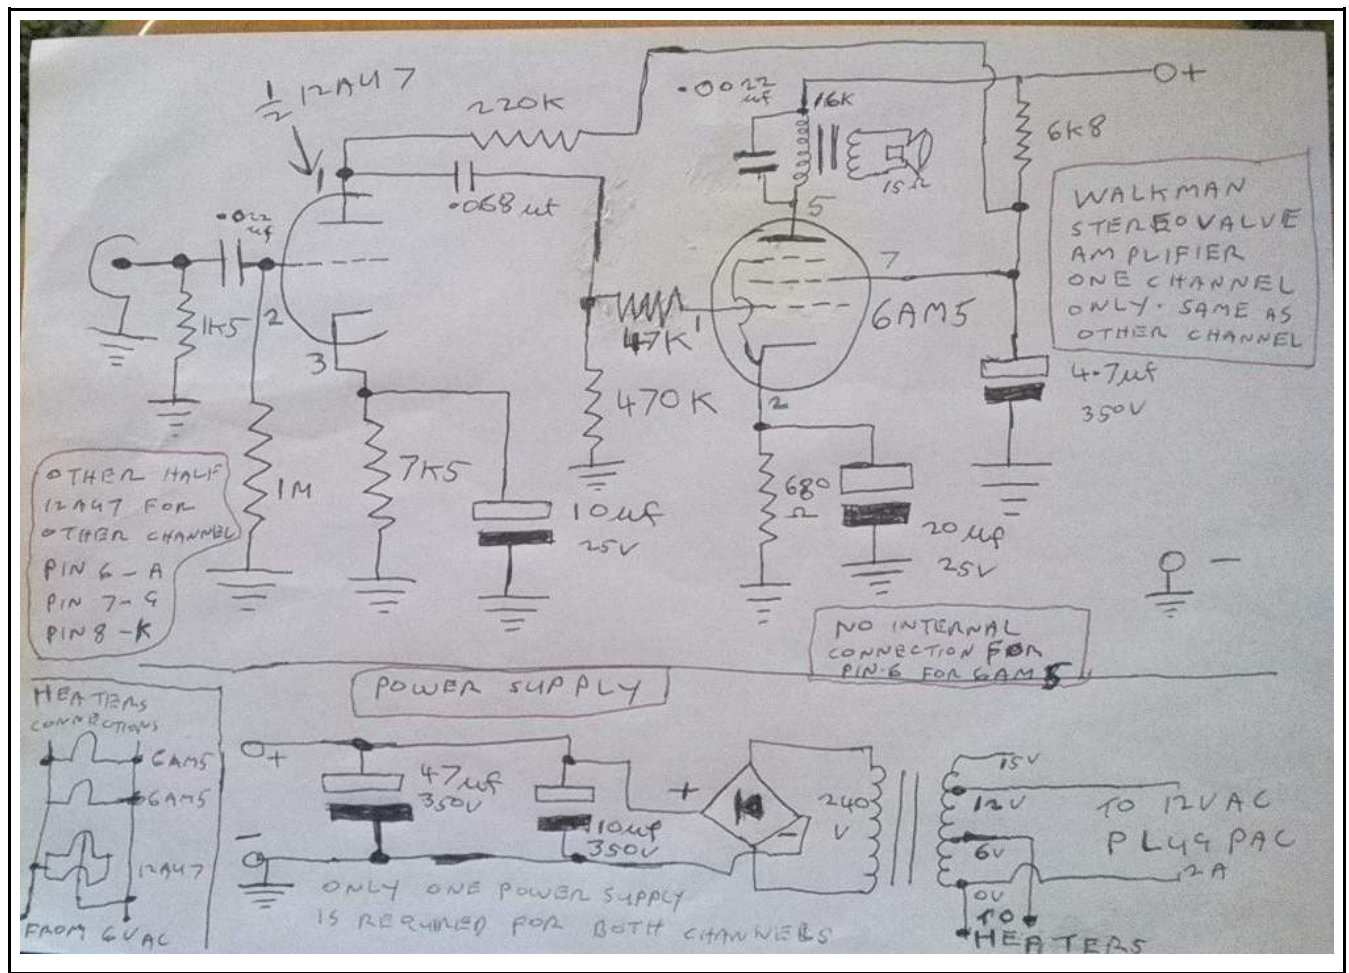 1/2 12AU7
220K
.0022
uf
16K
+
6K8
1
.068 uf
15Ω
5
WALKMAN
STEREO VALVE
AMPLIFIER
ONE CHANNEL
ONLY. SAME AS
OTHER CHANNEL
.022
uf
7
1K5
2
47K
1
6AM5
3
4.7uf
350V
470K
2
OTHER HALF
12AU7 FOR
OTHER CHANNEL
PIN 6 - A
PIN 7 - G
PIN 8 - K
1M
7K5
10uf
25V
680
Ω
20uf
25V
-
NO INTERNAL
CONNECTION FOR
PIN.6 FOR 6AM5
POWER SUPPLY
HEATERS
CONNECTIONS
6AM5
6AM5
12AU7
FROM 6VAC
+
47uf
350V
10uf
350V
-
+
-
240
V
15V
12V
6V
0V
TO 12VAC
PLUG PAC
2A
TO
HEATERS
ONLY ONE POWER SUPPLY
IS REQUIRED FOR BOTH CHANNELS